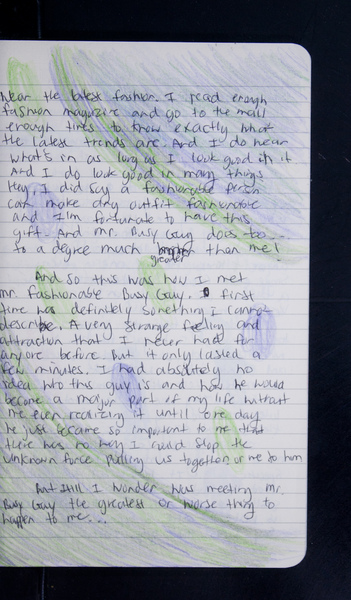 wear the latest fashion. I read enough
fashion magazine and go to the mall
enough times to know exactly what
the latest trends are. And I do wear
what's in as long as I look good in it
And I do look good in many things
Hey, I did say a fashionable person
can make any outfit fashionable
and I'm fortunate to have this
gift. And Mr. Busy Guy does too...
to a degree much greater than me!
And so this was how I met
mr. fashionable Busy Guy. first
time was definitely something I cannot
describe. A very strange feeling and
attraction that I never had for
anyone before but it only lasted a
few minutes. I had absolutely no
idea who this guy is and how he would
become a major part of my life without
me even realizing it until one day
he just became so important to me that
there was no way I could stop the
unknown force pulling us together, or me to him
But still I wonder was meeting Mr.
Busy Guy the greatest or worse thing to
happen to me...